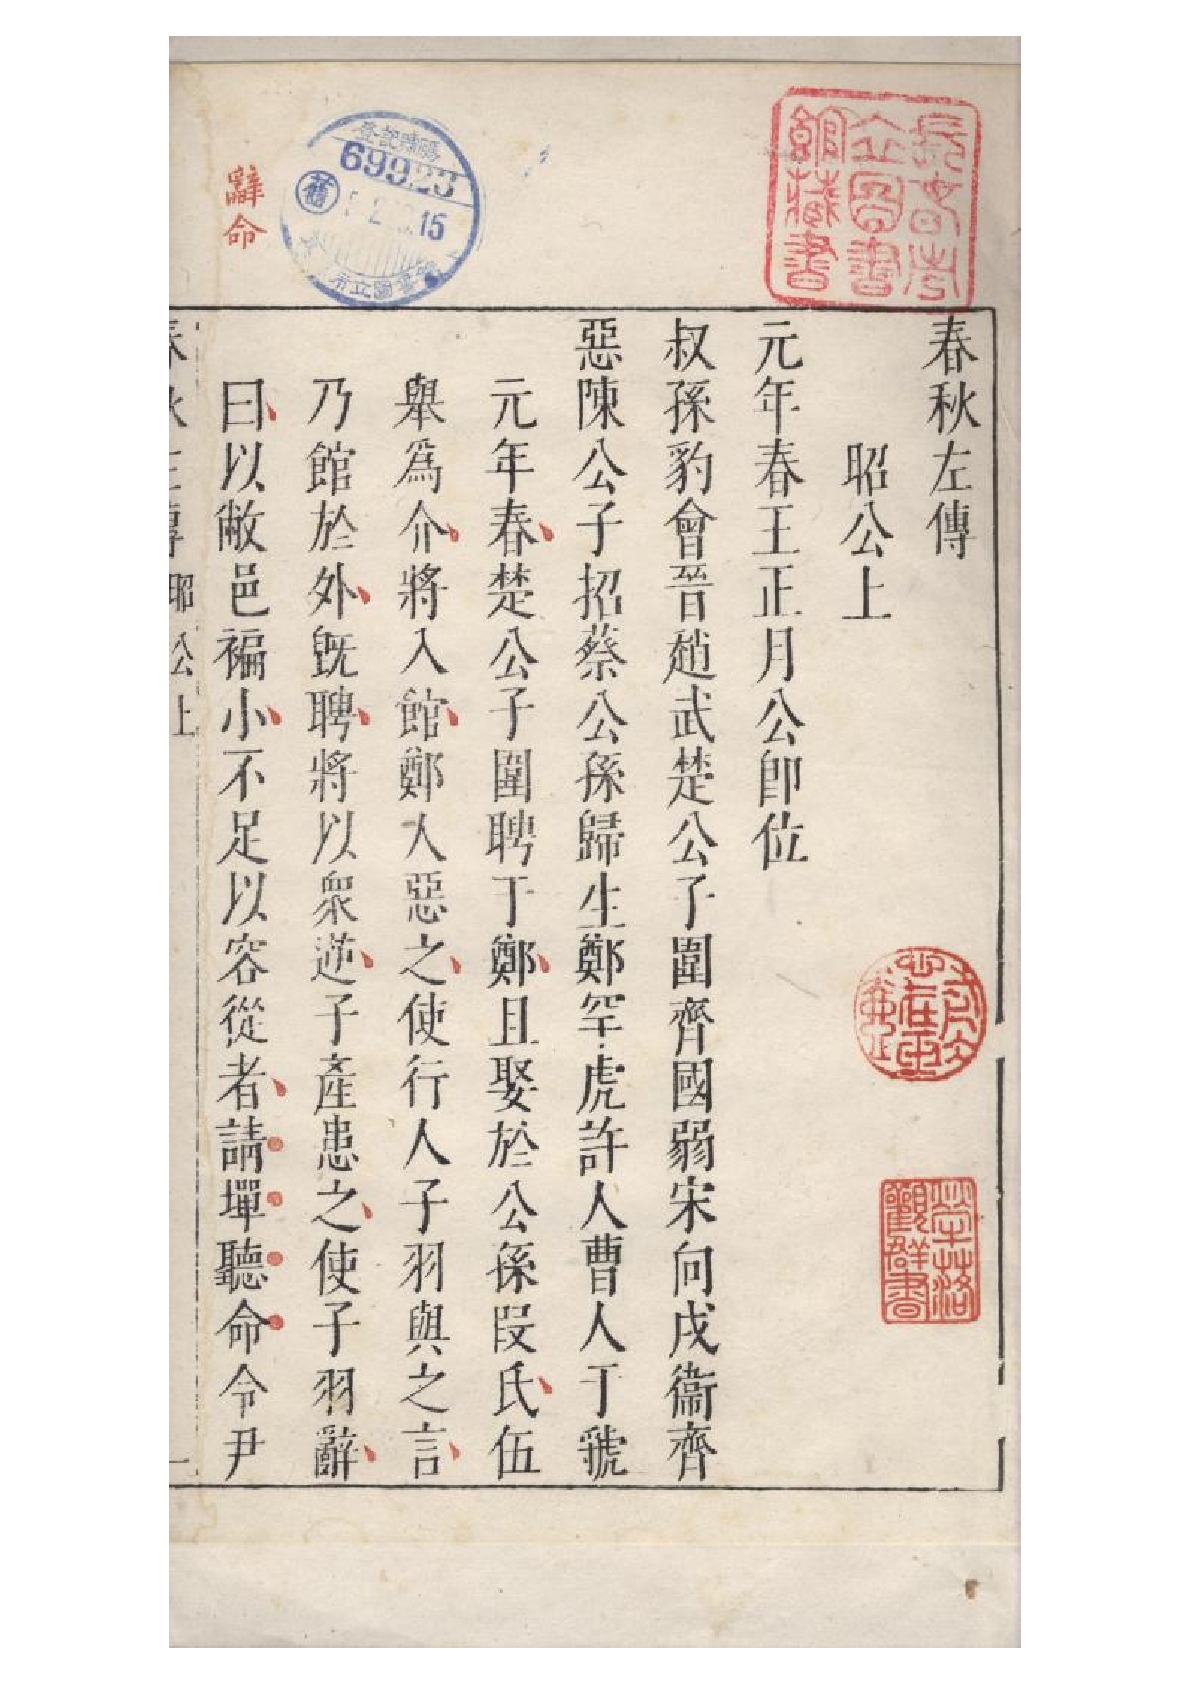 春秋左傳
昭公上
元年春王正月公卽位
叔孫豹會晉趙武楚公子圍齊國弱宋向戌衞齊
惡陳公子招蔡公孫歸生鄭罕虎許人曹人于虢
元年春楚公子圍聘于鄭且娶於公孫段氏伍
舉爲介將入館鄭人惡之使行人子羽與之言
乃館於外旣聘將以衆逆子產患之使子羽辭
曰以敝邑褊小不足以容從者請墠聽命令尹
春秋左傳 昭公上 一
辭命
長春市立圖書館藏書
69923
舊
15
市立圖書館
觀群書